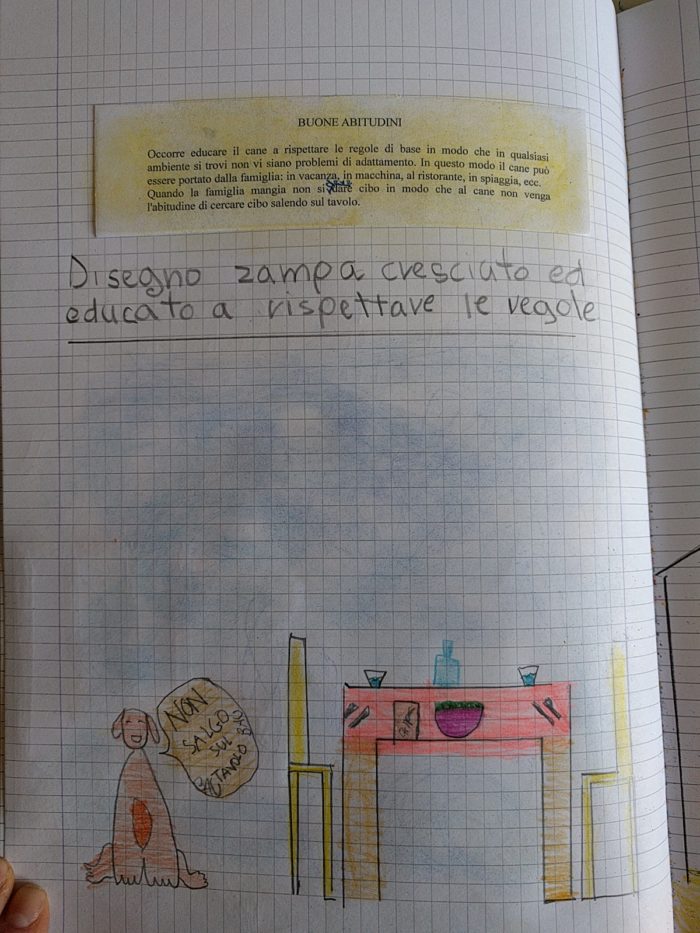 BUONE ABITUDINI
Occorre educare il cane a rispettare le regole di base in modo che in qualsiasi
ambiente si trovi non vi siano problemi di adattamento. In questo modo il cane può
essere portato dalla famiglia: in vacanza, in macchina, al ristorante, in spiaggia, ecc.
Quando la famiglia mangia non si dare cibo in modo che al cane non venga
l'abitudine di cercare cibo salendo sul tavolo.
Disegno zampa cresciuto ed
educato a rispettare le regole
NON
SALGO
SUL
TAVOLO BAU